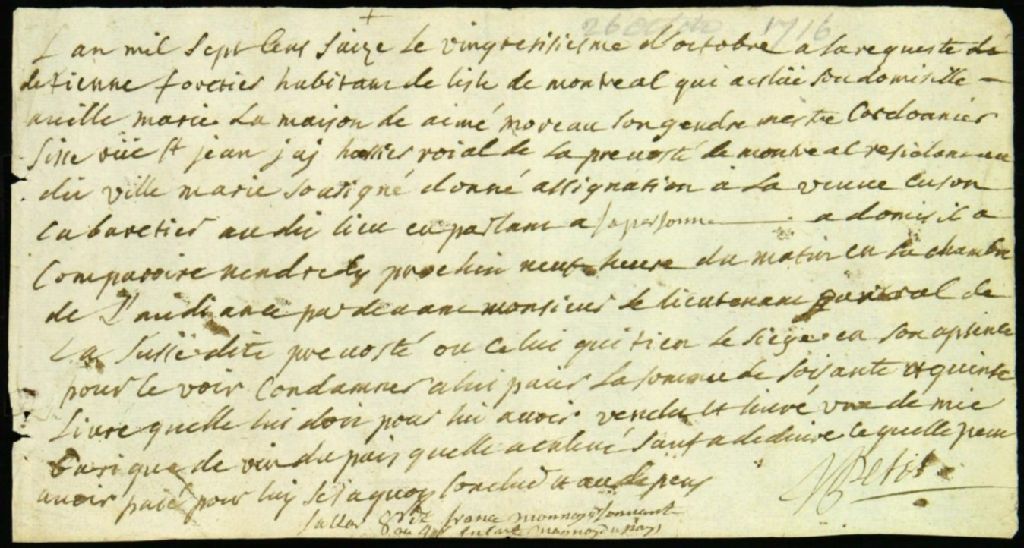 26 octobre 1716
L an mil sept cens saize le vingtesisiesme d'octobre a la requeste de
detienne foretier habitant de lisle de montreal qui a eslüe son domisille
a ville marie La maison de aimé moreau son gendre mestre Cordonnier
sise rüe st jean j'aj hussier roial de la prevosté de montreal residant au
dit ville marie soutigné donné assignation a La veuve Cuson
Cabaretier audit lieu en parlant a sa personne a domisil a
Comparoire vendredy prochin neuf heure du matin en la chambre
de L'audiance pardevant monsieur le lieutenant general de
La susse dite prevosté ou celui qui tien le siege en son absence
pour se voir Condamner a lui paier la somme de soisante et quinse
Livre quelle lui doit pour lui avoir vendu et livré une demie
barique de vin du pais quelle a enlevé sauf a deduire ce quelle peut
avoir paié pour luy se a quoy Conclud et au depens
Petit
france monnoye sonnant
monnoye du pays